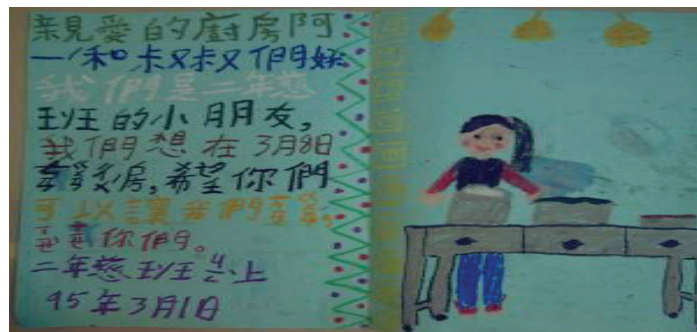 親愛的廚房阿
一/和叔叔們好
我們是二年慈
班的小朋友,
我們想在3月8日
參觀廚房,希望你們
可以讓我們參觀,
謝謝你們。
二年慈班 上
95年3月1日